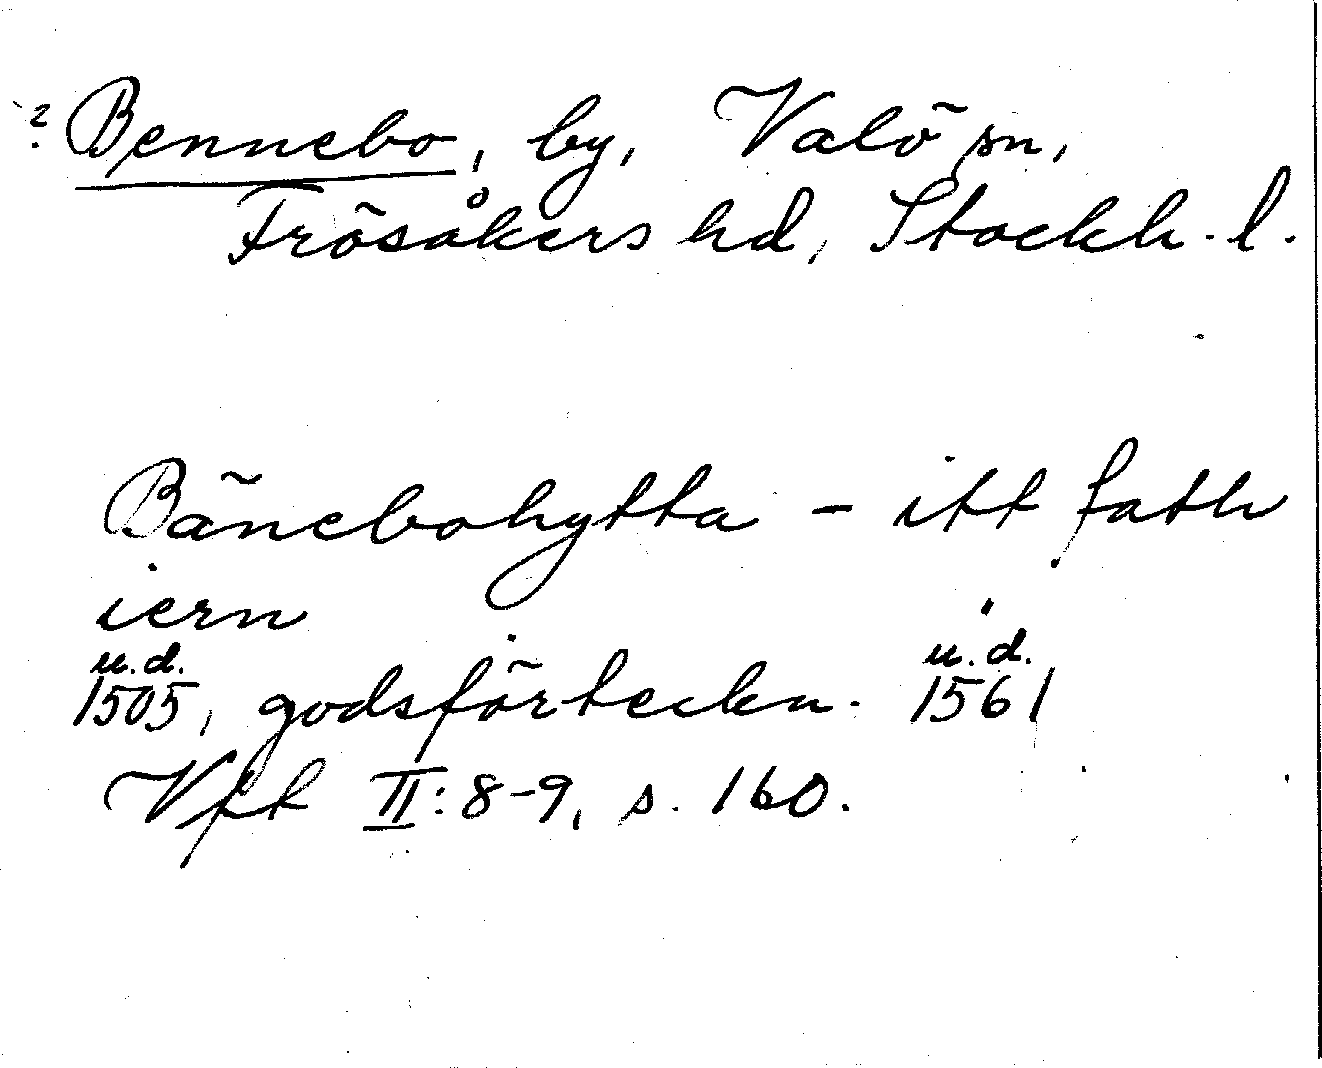 ? Bennebo, by, Valö sn,
Frösåkers hd, Stockh. l.
Bänebohytta - itt fath
iern
u.d. u.d.
1505, godsförteckn. 1561
Vft II:8-9, s. 160.